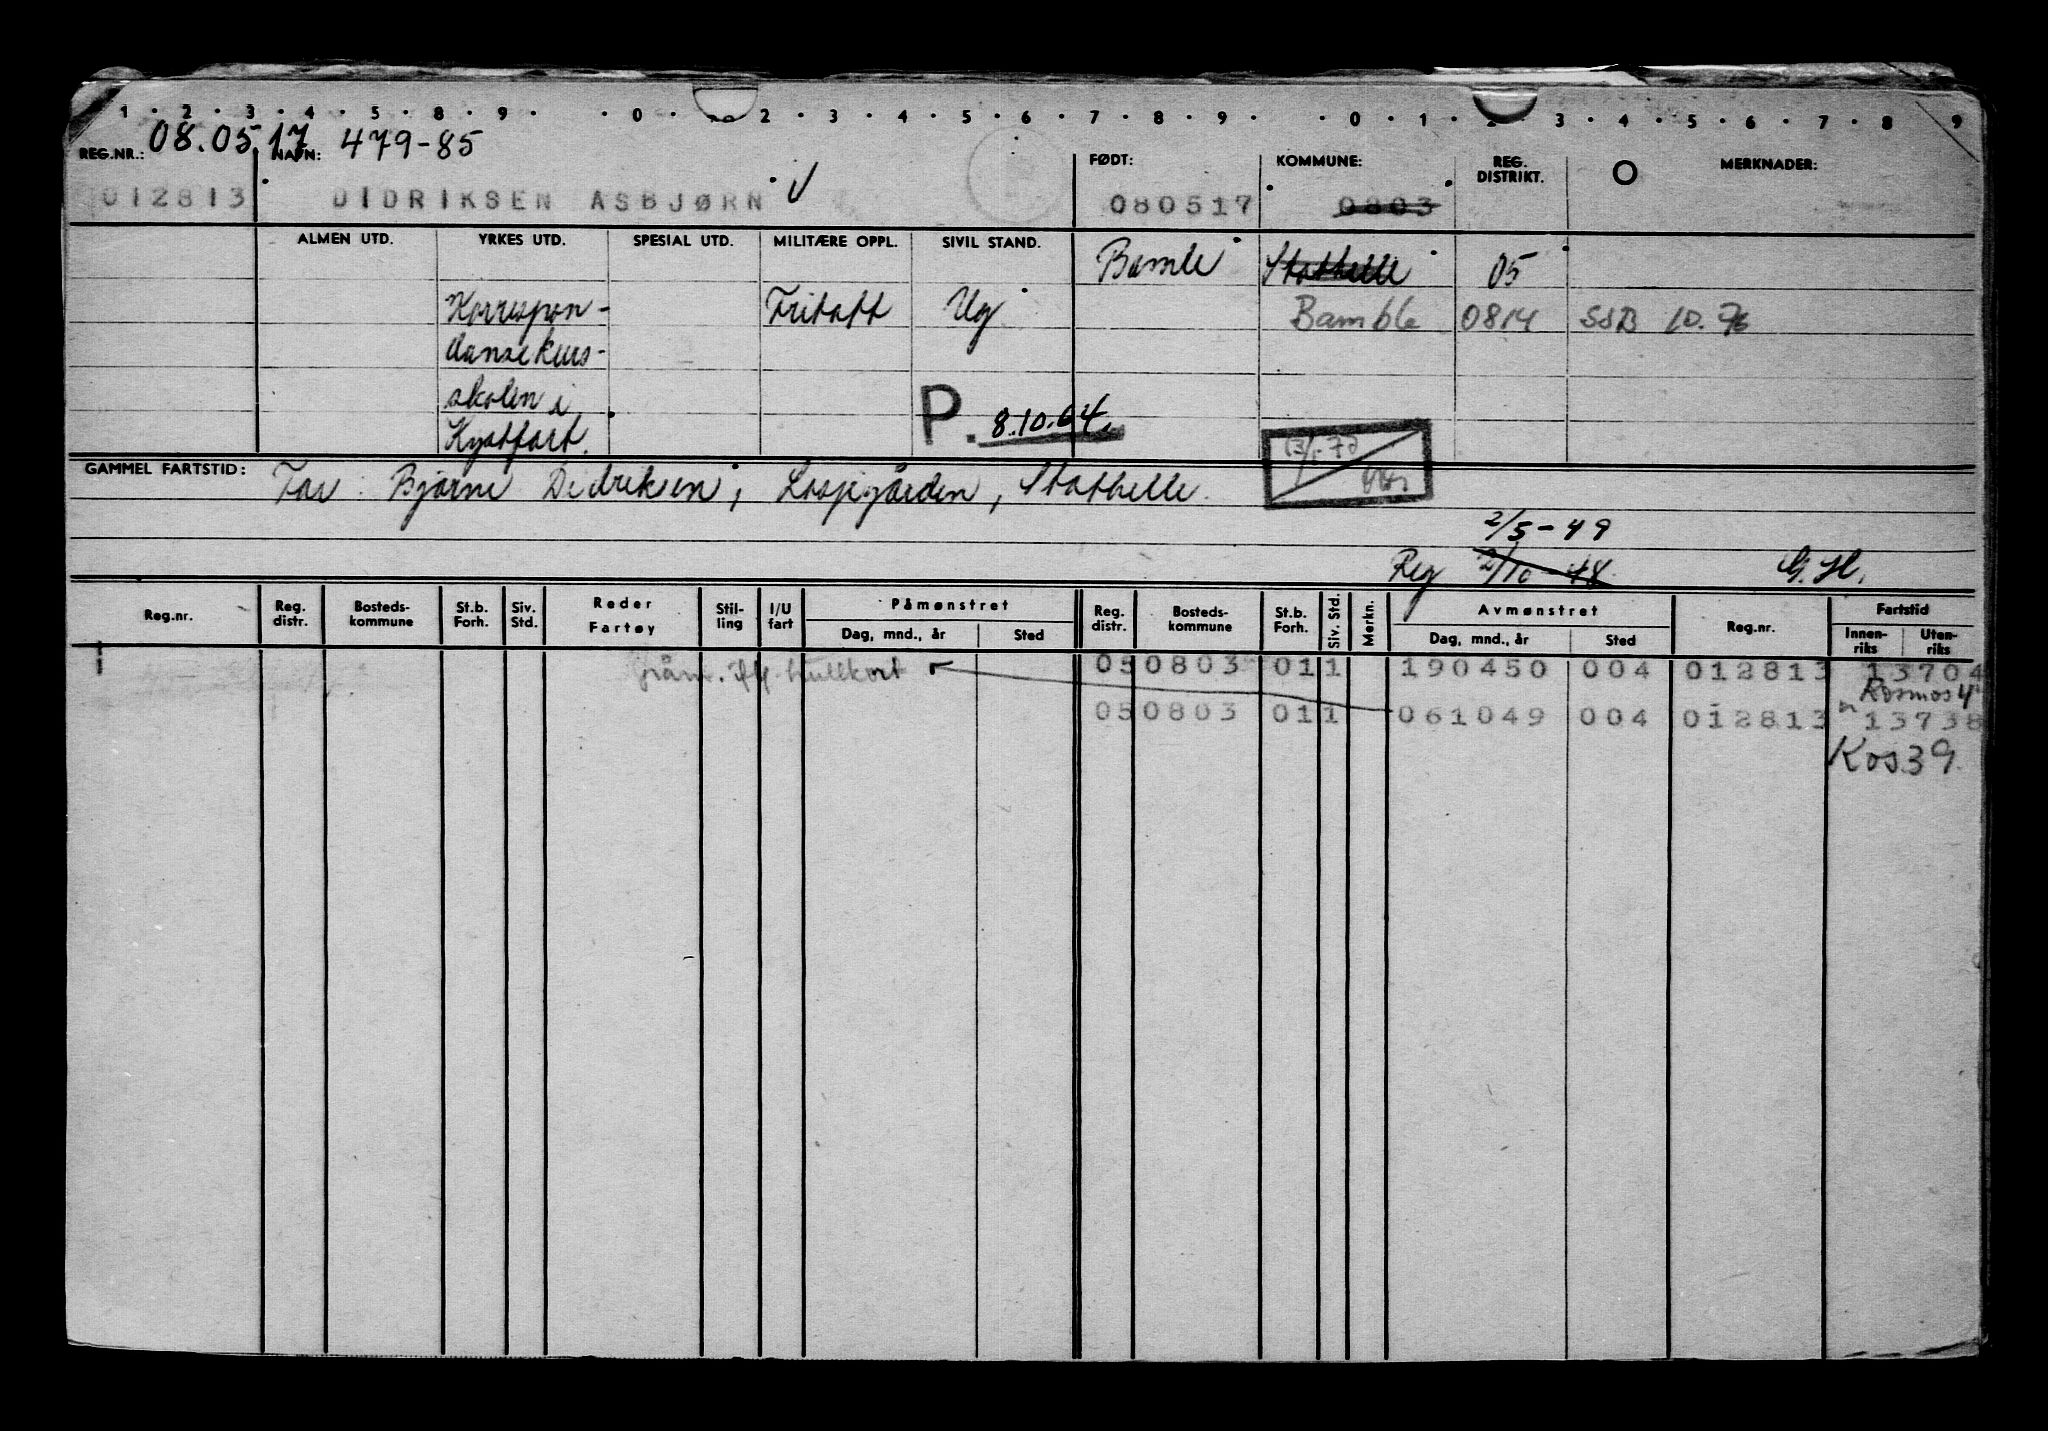 1 · 2 · 3 · 4 · 5 · 8 · 9 · · 0 · 2 · 3 · 4 · 5 · 6 · 7 · 8 · 9 · · 0 · 1 · 2 · 3 · 4 · 5 · 6 · 7 · 8 9
REG.NR.: 08.05.17 NAVN: 479-85 FØDT: KOMMUNE: REG. DISTRIKT. O MERKNADER:
012813 DIDRIKSEN ASBJØRN V 080517 0803
ALMEN UTD. YRKES UTD. SPESIAL UTD. MILITÆRE OPPL. SIVIL STAND. Bamle Stathelle 05
Korrespon- Fritatt Ug Bamble 0814 SSB 10.76
danse kurs-
skolen i P. 8.10.64.
Kystfart. 13/1-70
GAMMEL FARTSTID: Far: Bjarne Didriksen, Stathelle.
2/5-49
Reg 2/10-48 G.H.
Reg.nr. Reg. distr. Bosteds- kommune St.b. Forh. Siv. Std. Reder Fartøy Stil- ling I/U fart Påmønstret Dag, mnd., år Sted Reg. distr. Bosteds- kommune St.b. Forh. Siv. Std. Merkn. Avmønstret Dag, mnd., år Sted Reg.nr. Fartstid Innen- riks Uten- riks
hullkort 050803 011 190450 004 012813 13704
Kosmos 4
050803 011 061049 004 012813 13738
Kos39